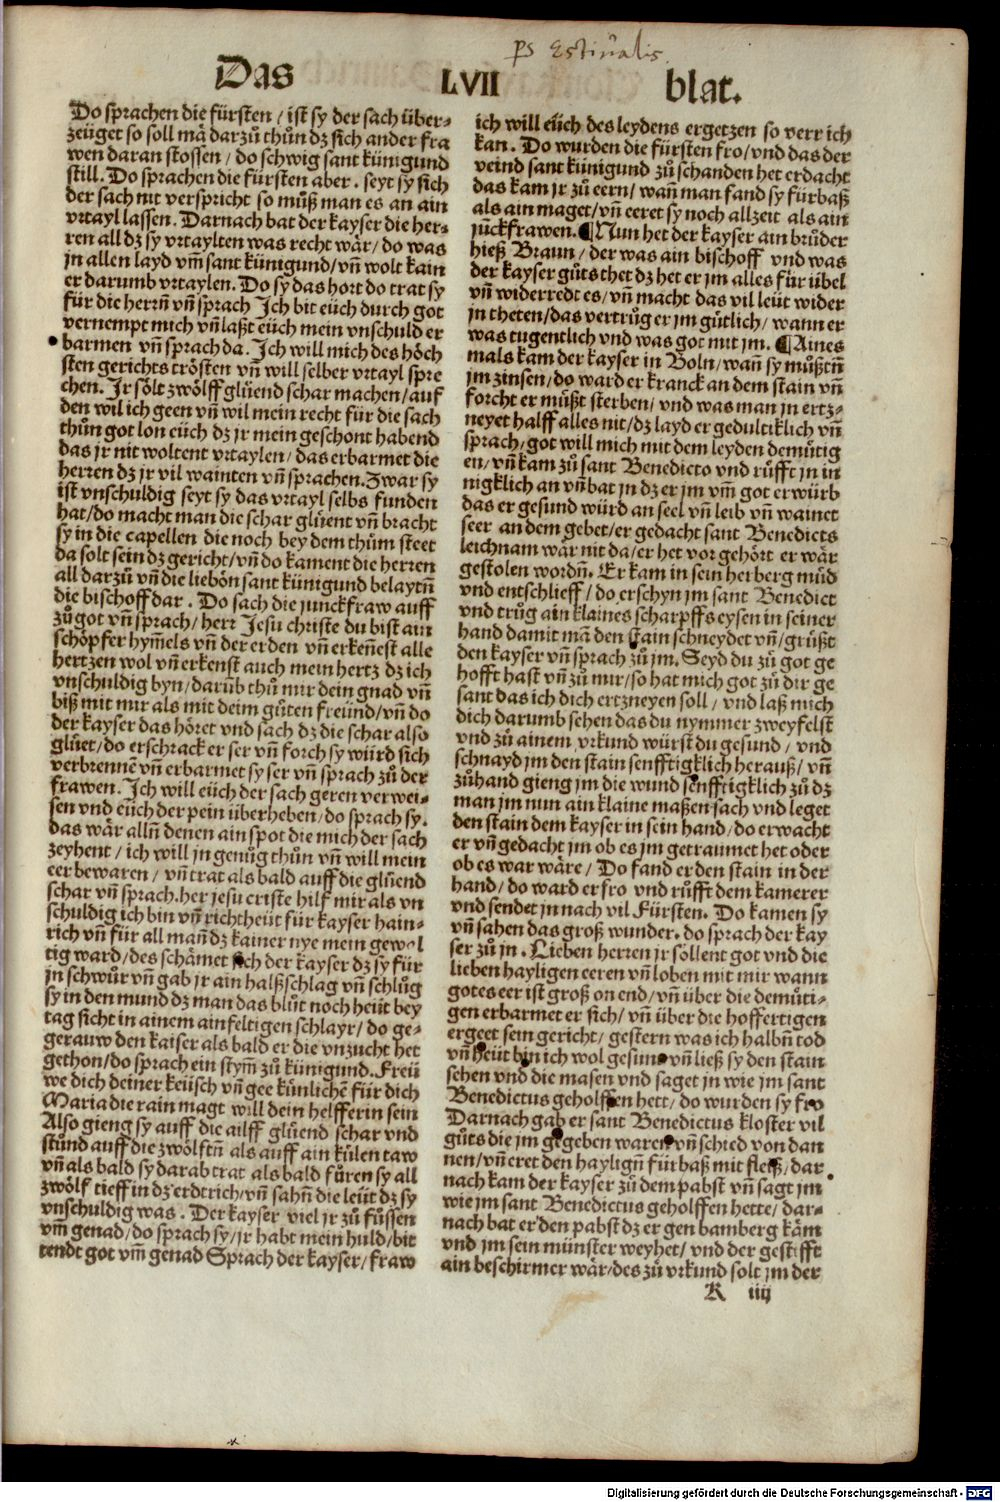 ps Estiualis.
Das LVII blat.
Do sprachen die fürsten / ist sy der sach über⸗
zeüget so soll mā darzů thůn dz sich ander fra
wen daran stossen / do schwig sant künigund
still. Do sprachen die fürsten aber . seyt sy sich
der sach nit verspricht so můß man es an ain
vrtayl lassen . Darnach bat der kayser die her⸗
ren all dz sy vrtaylten was recht wär / do was
jn allen layd vm̄ sant künigund / vn̄ wolt kain
er darumb vrtaylen. Do sy das hort do trat sy
für die herrn̄ vn̄ sprach Ich bit eüch durch got
vernempt mich vn̄ laßt eüch mein vnschuld er
barmen vn̄ sprach da. Ich will mich des höch
sten gerichts trösten vn̄ will selber vrtayl spre
chen. Ir sölt zwölff glüend schar machen / auf
den wil ich geen vn̄ wil mein recht für die sach
thůn got lon eüch dz jr mein geschont habend
das jr nit woltent vrtaylen / das erbarmet die
herren dz jr vil wainten vn̄ sprachen. Zwar sy
ist vnschuldig seyt sy das vrtayl selbs funden
hat / do macht man die schar glüent vn̄ bracht
sy in die capellen die noch bey dem thům steet
da solt sein dz gericht / vn̄ do kament die herren
all darzů vn̄ die liebōn sant künigund belaytn̄
die bischoff dar . Do sach die junckfraw auff
zů got vn̄ sprach / herr Jesu christe du bist ain
schöpfer hym̄els vn̄ der erden vn̄ erken̄est alle
hertzen wol vn̄ erkenst auch mein hertz dz ich
vnschuldig byn / darūb thů mir dein gnad vn̄
biß mit mir als mit deim gůten freünd / vn̄ do
der kayser das höret vnd sach dz die schar also
glüet / do erschrack er ser vn̄ forch sy würd sich
verbrennē vn̄ erbarmet sy ser vn̄ sprach zů der
frawen. Ich will eüch der sach geren verwei⸗
sen vnd eüch der pein überheben / do sprach sy.
das wär alln̄ denen ain spot die mich der sach
zeyhent / ich will jn genůg thůn vn̄ will mein
eer bewaren / vn̄ trat als bald auff die glüend
schar vn̄ sprach. her jesu criste hilf mir als vn
schuldig ich bin vn̄ richtheüt für kayser hain⸗
rich vn̄ für all man̄ dz kainer nye mein gewal
tig ward / des schämet sich der kayser dz sy für
jn schwůr vn̄ gab jr ain halßschlag vn̄ schlůg
sy in den mund dz man das blůt noch heüt bey
tag sicht in ainem ainfeltigen schlayr / do ge⸗
gerauw den kaiser als bald er die vnzucht het
gethon / do sprach ein stym̄ zů künigund. Freü
we dich deiner keüsch vn̄ gee künlichē für dich
Maria die rain magt will dein helfferin sein
Also gieng sy auff die ailff glüend schar vnd
stůnd auff die zwölftn̄ als auff ain külen taw
vn̄ als bald sy darab trat als bald fůren sy all
zwölf tieff in dz erdtrich / vn̄ sahn̄ die leüt dz sy
vnschuldig was . Der kayser viel jr zů füssen
vm̄ genad / do sprach sy / jr habt mein huld / bit
tendt got vm̄ genad Sprach der kayser / fraw
ich will eüch des leydens ergetzen so verr ich
kan . Do wurden die fürsten fro / vnd das der
veind sant künigund zů schanden het erdacht
das kam jr zů eern / wan̄ man fand sy fürbaß
als ain maget / vn̄ eeret sy noch allzeit als ain
jūckfrawen. ¶ Nun het der kayser ain brůder
hieß Braun / der was ain bischoff vnd was
der kayser gůts thet dz het er jm alles für übel
vn̄ widerredt es / vn̄ macht das vil leüt wider
jn theten / das vertrůg er jm gütlich / wann er
was tugentlich vnd was got mit jm. ¶ Aines
mals kam der kayser in Boln / wan̄ sy můßtn̄
jm zinsen / do ward er kranck an dem stain vn̄
forcht er můßt sterben / vnd was man jn ertz⸗
neyet halff alles nit / dz layd er gedultiklich vn̄
sprach / got will mich mit dem leyden demütig
en / vn̄ kam zů sant Benedicto vnd růfft jn in
nigklich an vn̄ bat jn dz er jm vm̄ got erwürb
das er gesund würd an seel vn̄ leib vn̄ wainet
seer an dem gebet / er gedacht sant Benedicts
leichnam wär nit da / er het vor gehört er wär
gestolen wordn̄. Er kam in sein herberg müd
vnd entschlieff / do erschyn jm sant Benedict
vnd trůg ain klaines scharpffs eysen in seiner
hand damit mā den stain schneydet vn̄ / grüßt
den kayser vn̄ sprach zů jm. Seyd du zů got ge
hofft hast vn̄ zů mir / so hat mich got zů dir ge
sant das ich dich ertzneyen soll / vnd laß mich
dich darumb sehen das du nymmer zweyfelst
vnd zů ainem vrkund würst du gesund / vnd
schnayd jm den stain senfftigklich herauß / vn̄
zůhand gieng jm die wund senfftigklich zů dz
man jm nun ain klaine maßen sach vnd leget
den stain dem kayser in sein hand / do erwacht
er vn̄ gedacht jm ob es jm getraumet het oder
ob es war wäre / Do fand er den stain in der
hand / do ward er fro vnd růfft dem kamerer
vnd sendet jn nach vil Fürsten. Do kamen sy
vn̄ sahen das groß wunder. do sprach der kay
ser zů jn . Lieben herren jr söllent got vnd die
lieben hayligen eeren vn̄ loben mit mir wann
gotes eer ist groß on end / vn̄ über die demüti⸗
gen erbarmet er sich / vn̄ über die hoffertigen
ergeet sein gericht / gestern was ich halbn̄ tod
vn̄ heüt bin ich wol gesund vn̄ ließ sy den stain
sehen vnd die masen vnd saget jn wie jm sant
Benedictus geholffen hett / do wurden sy fro
Darnach gab er sant Benedictus kloster vil
gůts die jm gegeben waren vn̄ schied von dan
nen / vn̄ eret den haylign̄ fürbaß mit fleiß / dar
nach kam der kayser zů dem pabst vn̄ sagt jm
wie jm sant Benedictus geholffen hette / dar⸗
nach bat er den pabst dz er gen bamberg käm
vnd jm sein münster weyhet / vnd der gestifft
ain beschirmer wär / des zů vrkund solt jm der
K iiij
Digitalisierung gefördert durch die Deutsche Forschungsgemeinschaft - DFG